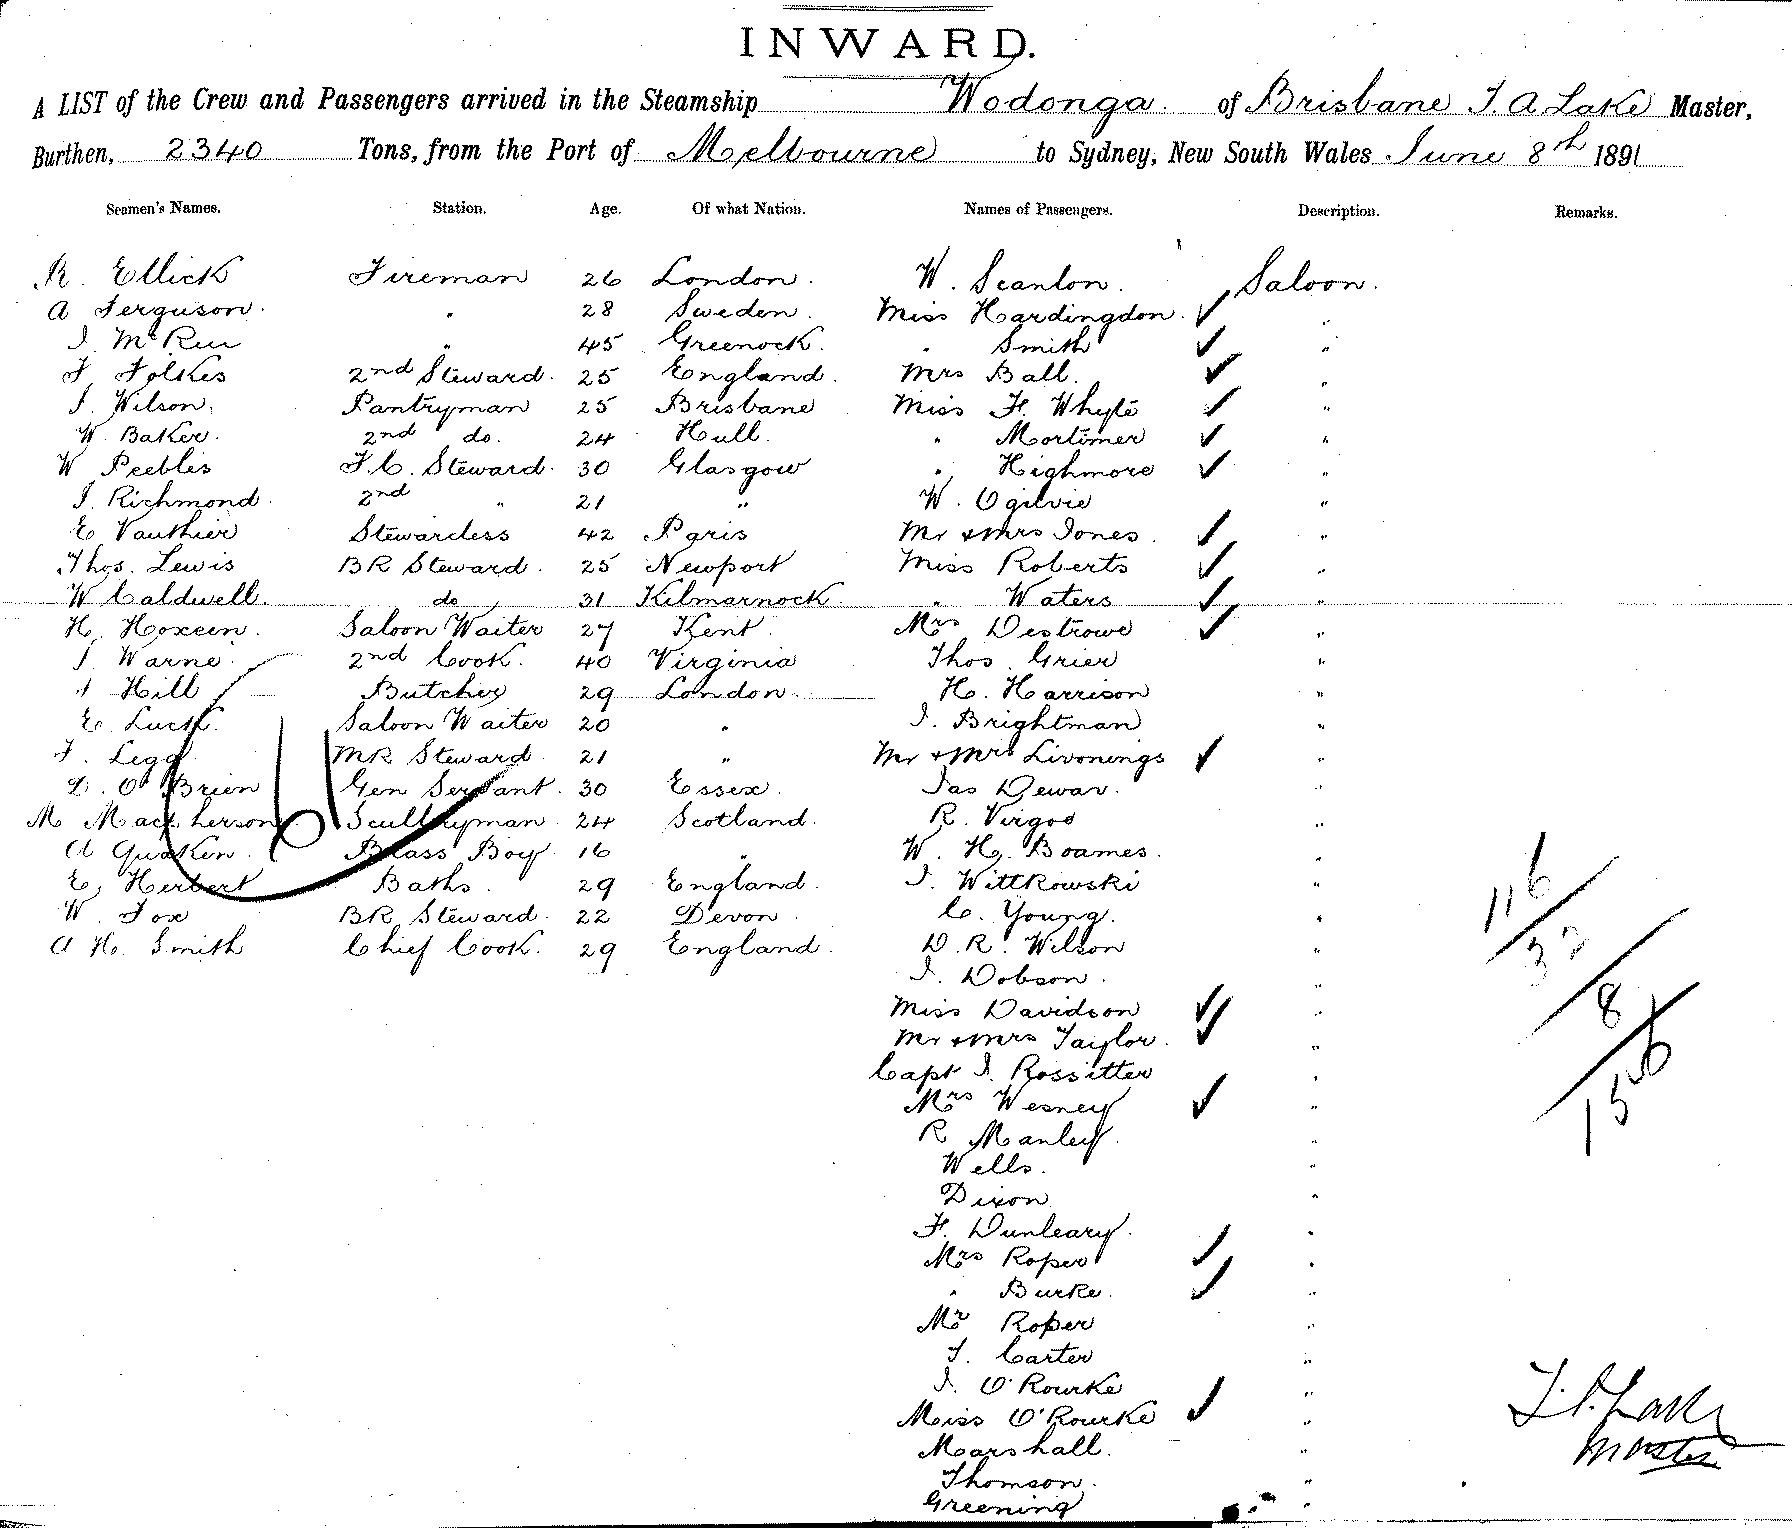 INWARD.
A LIST of the Crew and Passengers arrived in the Steamship Wodonga of Brisbane J. A Lake Master,
Burthen, 2340 Tons, from the Port of Melbourne to Sydney, New South Wales June 8th 1891
Seamen's Names. Station. Age. Of what Nation. Names of Passengers. Description. Remarks.
R. Ellick Fireman 26 London. W. Scanlon. Saloon.
A Ferguson. " 28 Sweden. Miss Hardingdon. ✓ "
J. McRea " 45 Greenock. " Smith ✓ "
F Folkes 2nd Steward. 25 England. Mrs Ball. ✓ "
J. Wilson. Pantryman 25 Brisbane Miss F. Whyte ✓ "
W. Baker. 2nd do. 24 Hull. " Mortimer ✓ "
W Peebles F.C. Steward. 30 Glasgow " Highmore ✓ "
J. Richmond. 2nd " 21 " W. Ogilvie "
E Vauthier Stewardess 42 Paris Mr & Mrs Jones. ✓ "
Thos. Lewis BR Steward. 25 Newport Miss Roberts ✓ "
W Caldwell. do 31 Kilmarnock. " Waters ✓ "
H. Hoxeen. Saloon Waiter 27 Kent. Mrs Destrowe ✓ "
J. Warne. 2nd Cook. 40 Virginia Thos. Grier "
A Hill Butcher 29 London. H. Harrison "
E. Luck. Saloon Waiter 20 " J. Brightman "
F. Legg MR Steward 21 " Mr & Mrs Livonings ✓ "
D. O'Brien Gen Servant. 30 Essex. Jas Dewar. "
M Macpherson. Scullryman. 24 Scotland. R. Virgoe "
A Quaken. Brass Boy 16 " W. H. Boames. "
E. Herbert Baths. 29 England. J. Wittkowski "
W. Fox BR Steward. 22 Devon. C. Young. "
A H. Smith Chief Cook. 29 England. D. R. Wilson "
J. Dobson. "
Miss Davidson ✓ "
Mr & Mrs Taylor. ✓ "
Capt J. Rossitter "
Mrs Wesney ✓ "
R Manley. "
Wells. "
Dixon "
F. Dunleary. "
Mrs Roper ✓ "
" Burke. ✓ "
Mr Roper "
T. Carter "
J. O'Rourke "
Miss O'Rourke ✓ "
Marshall. "
Thomson. "
Greening "
116
8
156
J. A. Lake
Master